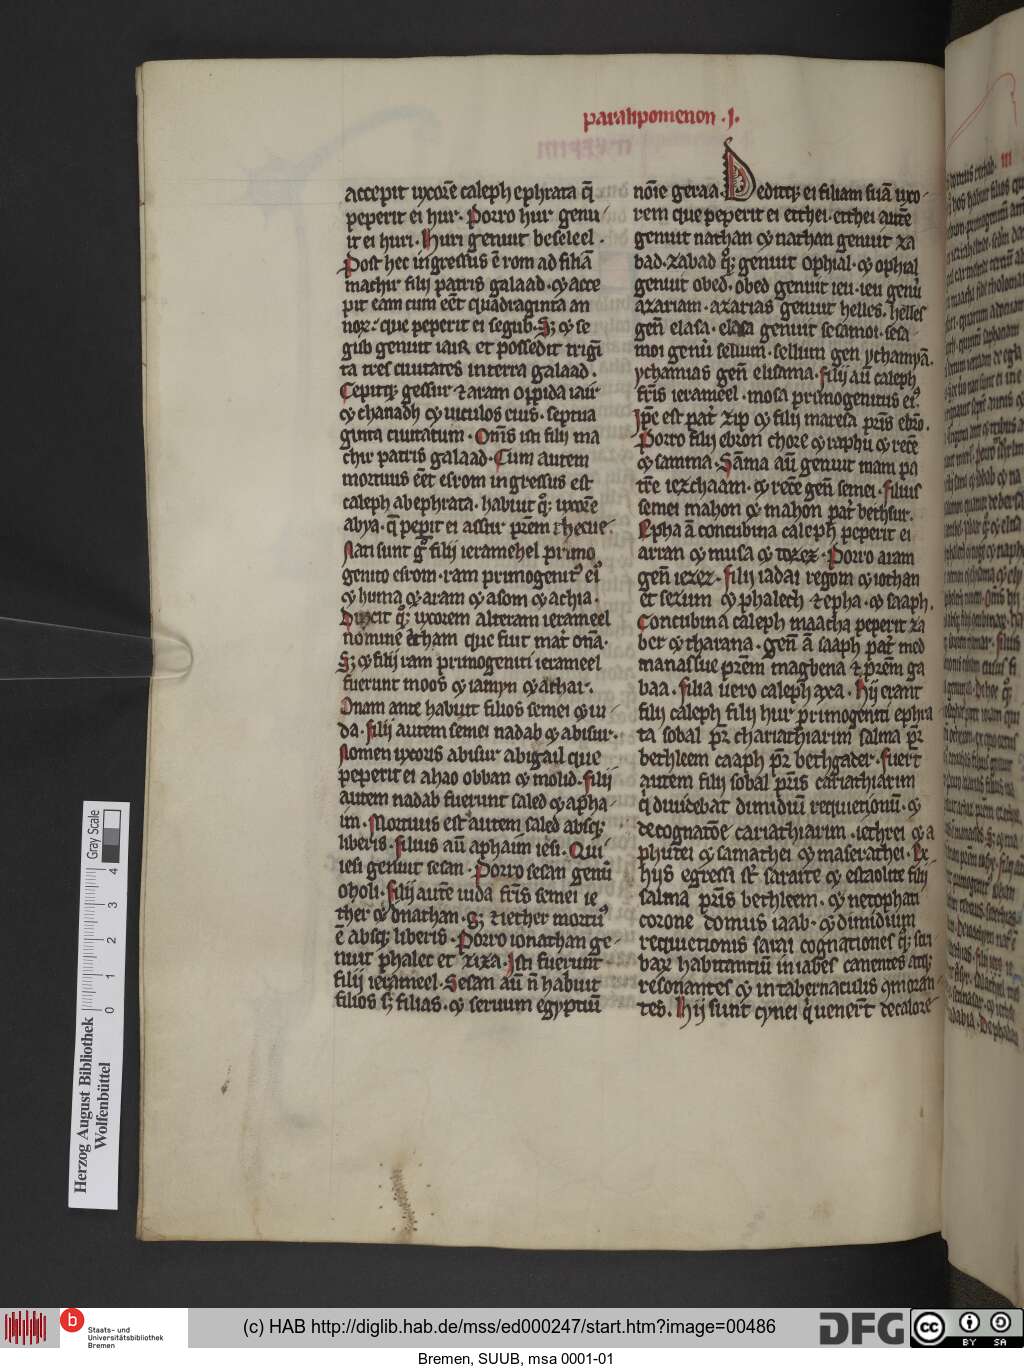 paralipomenon .I.
accepit uxorē caleph ephrata q̄
peperit ei hur. Porro hur genu
it ei huri. Huri genuit beseleel.
Post hec ingressus ē rom ad filiā
machir filij patris galaad. & acce
pit eam cum eēt quadraginta an
noꝝ. que peperit ei segub. Sꝫ & se
gub genuit iair et possedit trigī
ta tres ciuitates in terra galaad.
Cepitqꝫ gessur & aram oppida iair
& chanadh & uiculos eius. septua
ginta ciuitatum. Om̄s isti filij ma
chir patris galaad. Cum autem
mortuus eēt esrom ingressus est
caleph ab ephrata. habuit qꝫ uxorē
abya. q̄ pepit ei assur prēm thecue.
Nati sunt g̊ filij ieramehel primo
genito esrom. ram primogenitꝰ eiꝰ
& huma & aram & asom & achia.
Duxit qꝫ uxorem alteram ierameel
nomine etham que fuit mat̉ onā.
Sꝫ & filij ram primogeniti ierameel
fuerunt moos & iamyn & athar.
Onam ante habuit filios semei & iu
da. Filij autem semei nadab & abisur.
Nomen uxoris abisur abigail que
peperit ei ahao obban & molid. Filij
autem nadab fuerunt saled & apha
im. Mortuus est autem saled absqꝫ
liberis. Filius aū aphaim iesi. Qui
iesi genuit sesan. Porro sesan genū
oholi. Filij autē iuda fr̄is semei ie
ther & onathan. Sꝫ & iether mortuꝰ
ē absqꝫ liberis. Porro ionathan ge
nuit phalet et ziza. Isti fuerunt
filij ierameel. Sesan aū n̄ habuit
filios sꝫ filias. & seruum egyptiū
nōīe geraa. Deditqꝫ ei filiam suā uxo
rem que peperit ei etthei. etthei autē
genuit nathan & nathan genuit za
bad. zabad qꝫ genuit ophial. & ophial
genuit obed. obed genuit ieu. ieu genū
azariam. azarias genuit helles. helles
gen̄ elasa. elasa genuit sesamoi. sesa
moi genū sellum. sellum gen ychamyā.
ychamias gen̄ elisama. Filij aū caleph
fr̄is ierameel. mosa primogenitus eiꝰ.
Ip̄e est pat̉ zip & filij maresa pr̄is ebrō.
Porro filij ebron chore & raphu & recē
& samma. Sāma aū genuit raam pa
trē iezchaam. & recē gen̄ semei. Filius
semei mahon & mahon pat̉ bethsur.
Epha ā concubina caleph peperit ei
arran & musa & iezez. Porro aram
gen̄ iezez. Filij iadai regom & iothan
et sezum & phalech & epha. & saaph.
Concubina caleph maacha peperit za
ber & tharana. gen̄ ā saaph pat̉ med
manassue prēm magbena & prēm ga
baa. Filia uero caleph axa. Hij erant
filij caleph filij hur primogeniti ephra
ta sobal pr̄ chariathiarim salma pr̄
bethleem caaph pr̄ bethgader. Fuerr̄t
autem filij sobal pr̄is cariathiarim
q̇ diuidebat dimidiū requietionū. &
de cognatōe cariathiarim. iethrei & a
phutei & samathei & maserathei. Ex
hijs egressi sr̄ saraite & estaolite filij
salma pr̄is bethleem. & netophati
corone domus iaab. & dimidium
requietionis sarai cognationes qꝫ scri
baꝝ habitantiū in iabes canentes atqꝫ
resonantes & in tabernaculis q̄moran
tes. Hij sunt cynei q̇ uenerr̄t de calore
Herzog August Bibliothek
Wolfenbüttel
Gray Scale
0 1 2 3 4
b
Staats- und
Universitätsbibliothek
Bremen
(c) HAB http://diglib.hab.de/mss/ed000247/start.htm?image=00486
DFG
cc
BY SA
Bremen, SUUB, msa 0001-01